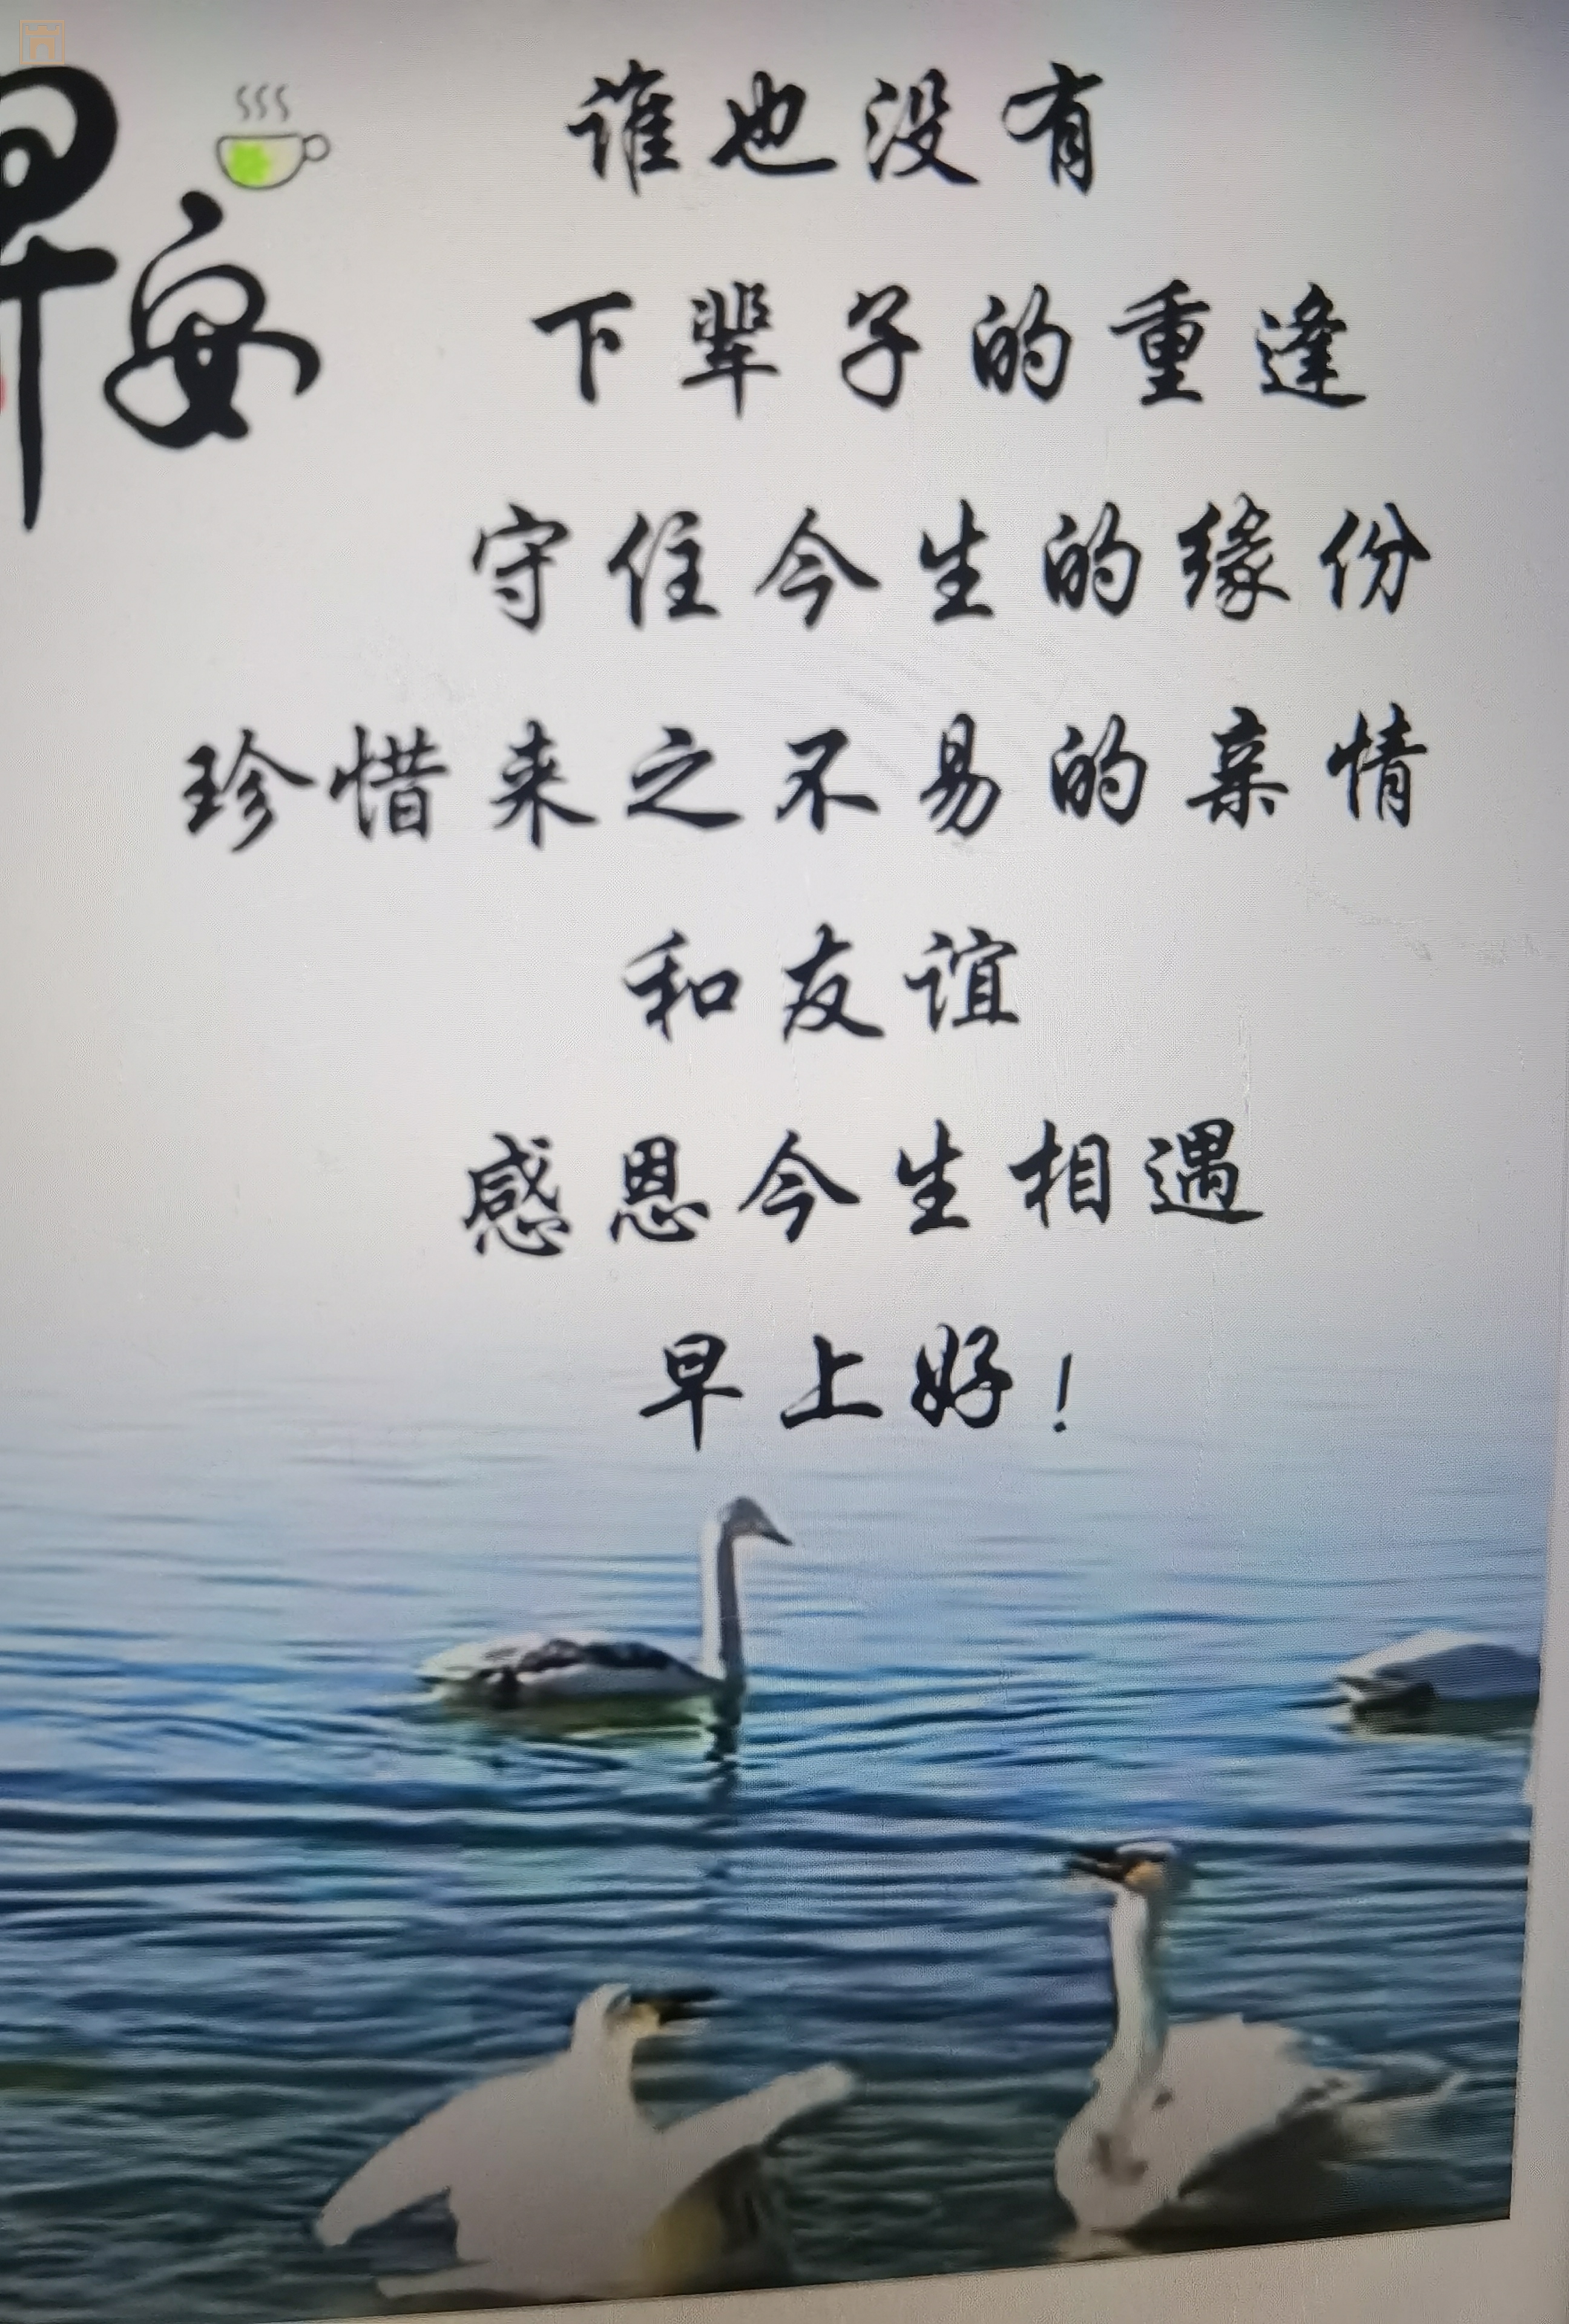 早安
谁也没有
下辈子的重逢
守住今生的缘份
珍惜来之不易的亲情
和友谊
感恩今生相遇
早上好！